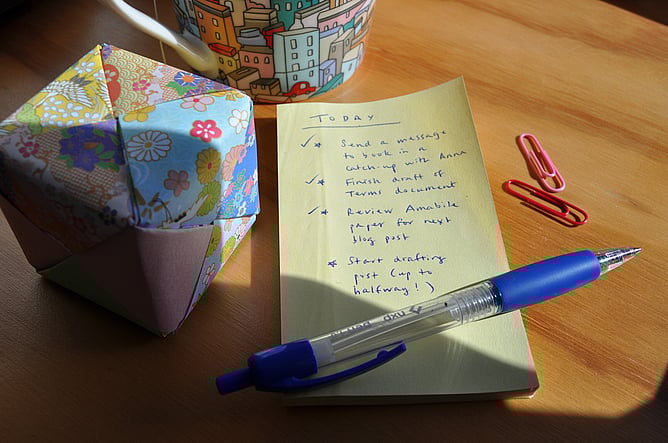 TODAY
✓* Send a message
to book in a
catch-up with Anna
✓* Finish draft of
Terms document
✓* Review Amabile
paper for next
blog post
* Start drafting
post (up to
halfway!)